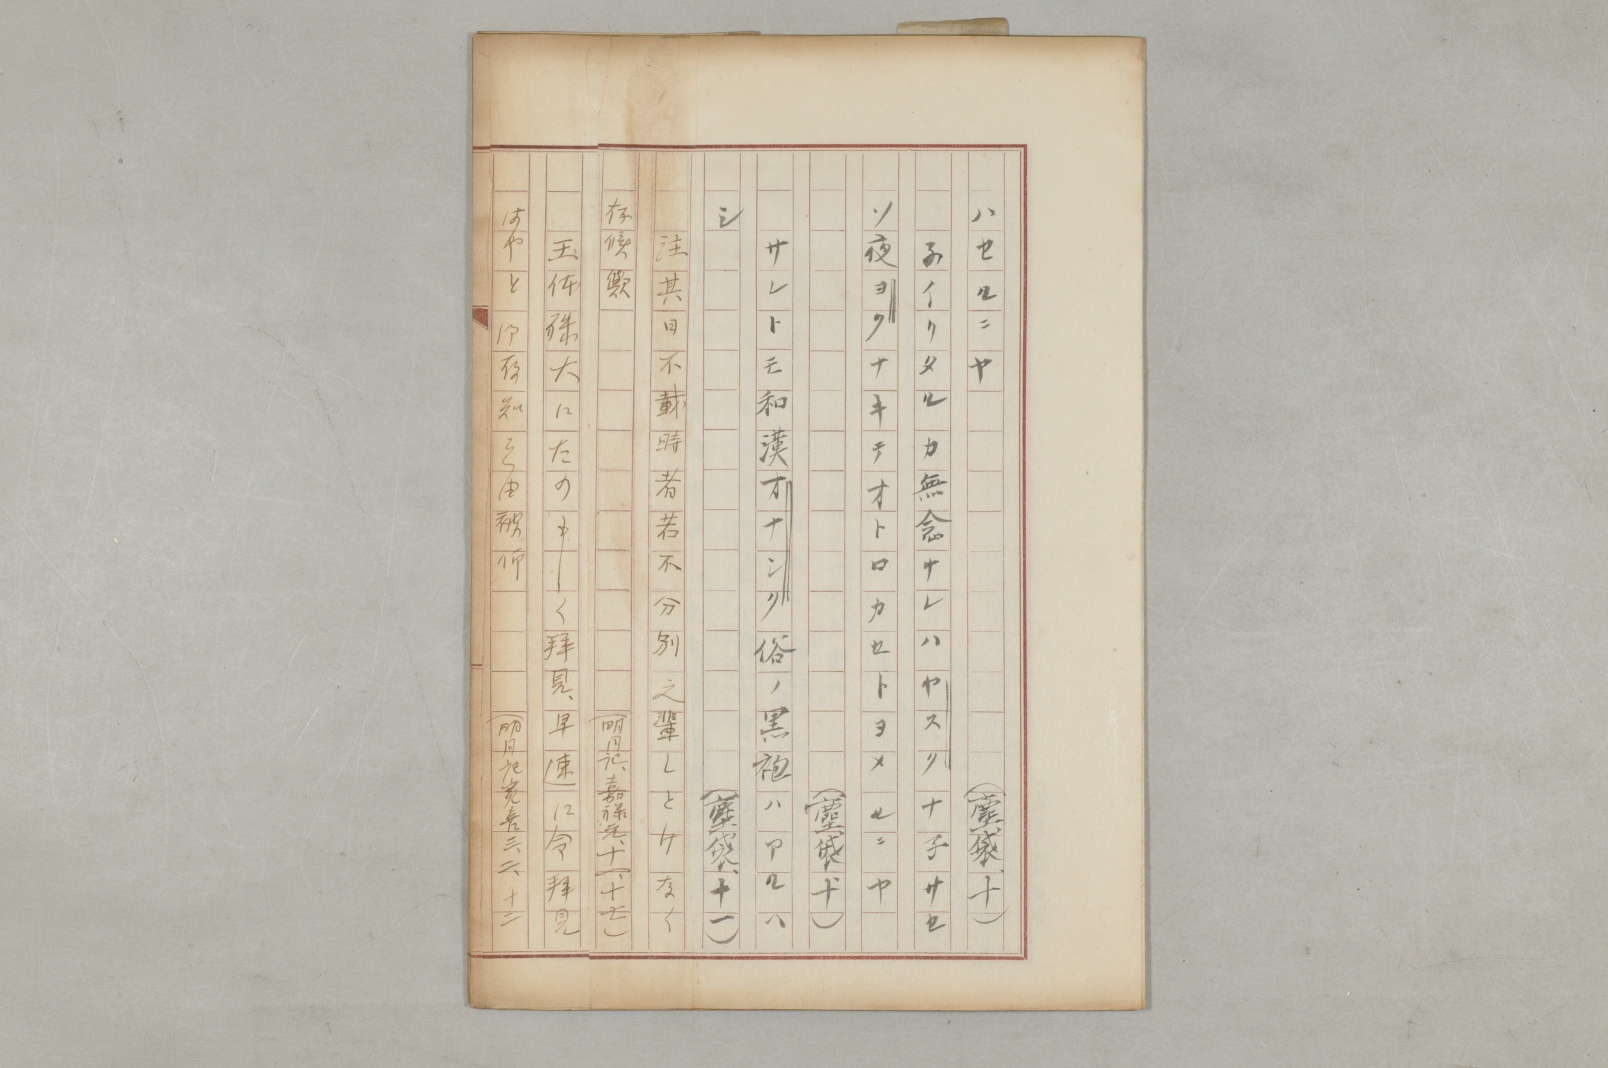 ハセルニヤ　（塵袋、十）
子イリタルカ無念サレハヤスクナ子サセ
ソ夜ヨクナキテオトロカセトヨメルニヤ
（塵袋十）
サレトモ和漢オナシク俗ノ黒袍ハアルヘ
シ　（塵袋、十一）
注其日不載時者若不分別之輩しとけなく
存候歟　（明月記、嘉禄元、十一、十七）
玉体殊大にたのもしく拝見、早速に令拝見
はやと御存知之由被仰　（明月記寛喜三、二、十二